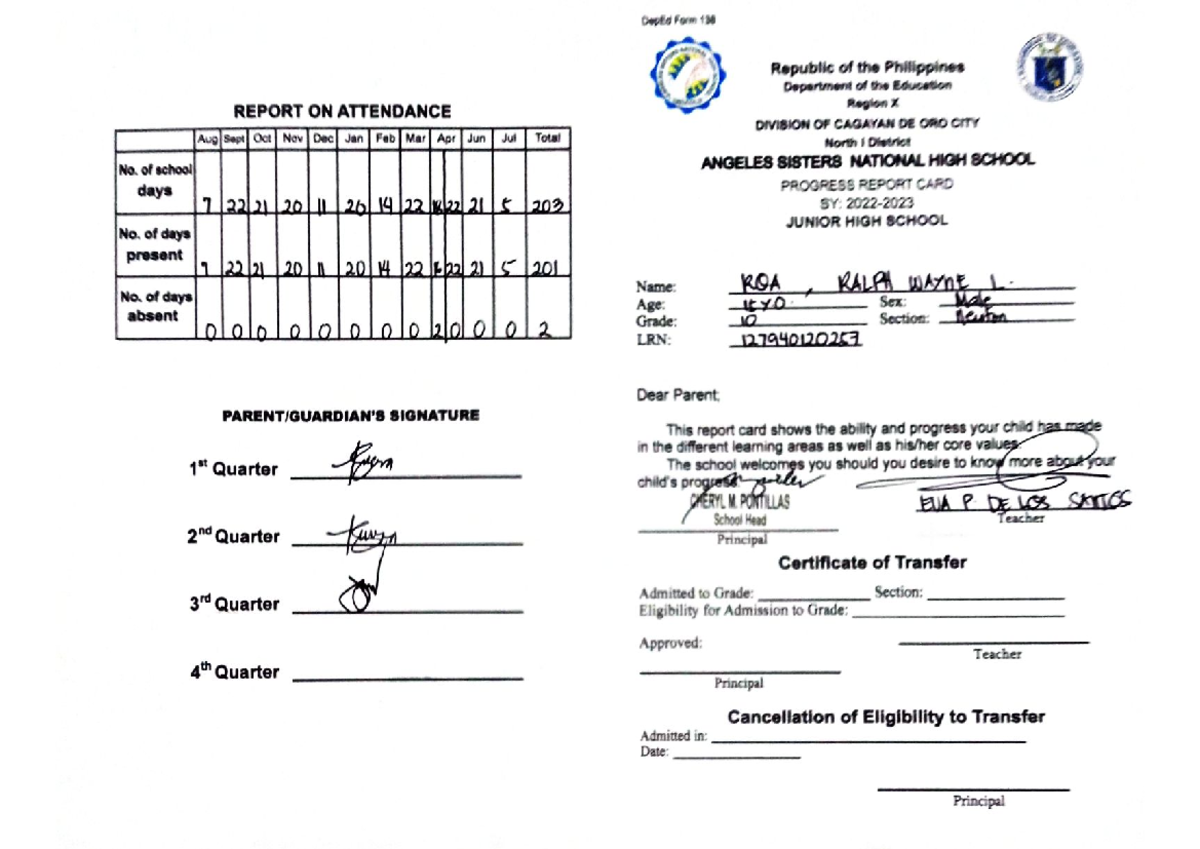 REPORT ON ATTENDANCE
Aug Sept Oct Nov Dec Jan Feb Mar Apr Jun Jul Total
No. of school days 7 22 21 20 11 20 14 22 22 21 5 203
No. of days present 7 22 21 20 11 20 14 22 22 21 5 201
No. of days absent 0 0 0 0 0 0 0 0 2 0 0 0 2
PARENT/GUARDIAN'S SIGNATURE
1st Quarter
2nd Quarter
3rd Quarter
4th Quarter
DepEd Form 138
Republic of the Philippines
Department of the Education
Region X
DIVISION OF CAGAYAN DE ORO CITY
North I District
ANGELES SISTERS NATIONAL HIGH SCHOOL
PROGRESS REPORT CARD
SY: 2022-2023
JUNIOR HIGH SCHOOL
Name: ROA, RALPH WAYNE L.
Age: Sex: Male
Grade: 10 Section: Newton
LRN: 127940120257
Dear Parent;
This report card shows the ability and progress your child has made
in the different learning areas as well as his/her core values.
The school welcomes you should you desire to know more about your
child's progress.
CHERYL M. PONTILLAS EVA P. DE LOS SANTOS
School Head Teacher
Principal
Certificate of Transfer
Admitted to Grade: Section:
Eligibility for Admission to Grade:
Approved:
Teacher
Principal
Cancellation of Eligibility to Transfer
Admitted in:
Date:
Principal